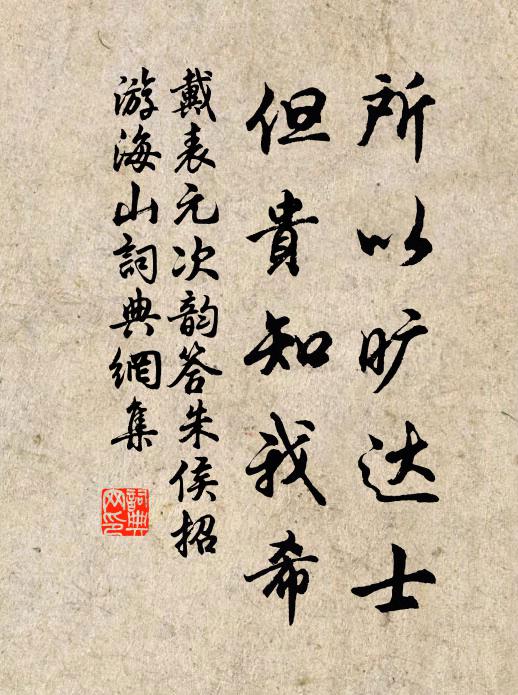 所以旷达士
但貴知我希
戴表元次韵答朱侯招
游海山詞典網集
詞典网印